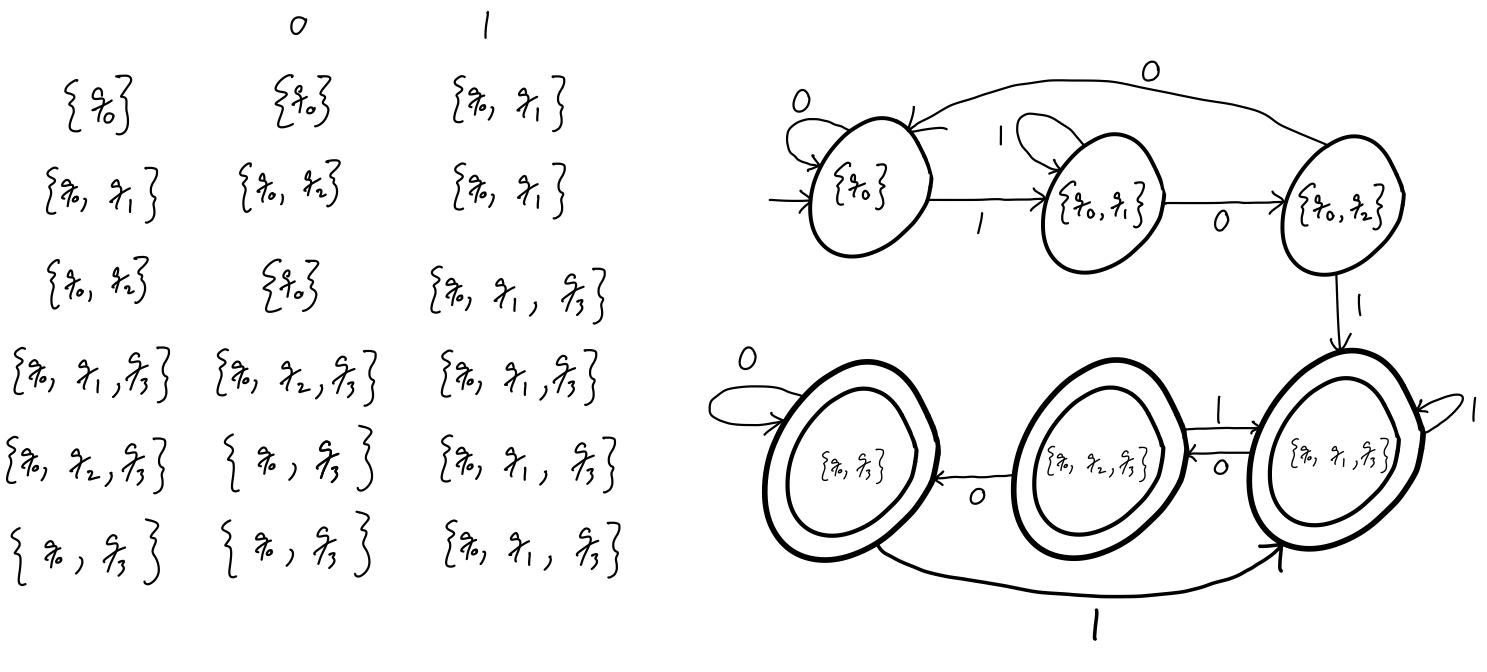 0 1
{q₀} {q₀} {q₀, q₁}
{q₀, q₁} {q₀, q₂} {q₀, q₁}
{q₀, q₂} {q₀} {q₀, q₁, q₃}
{q₀, q₁, q₃} {q₀, q₂, q₃} {q₀, q₁, q₃}
{q₀, q₂, q₃} {q₀, q₃} {q₀, q₁, q₃}
{q₀, q₃} {q₀, q₃} {q₀, q₁, q₃}
0
0 1
{q₀} {q₀, q₁} {q₀, q₂}
1 0
1
0
1 1
{q₀, q₃} {q₀, q₂, q₃} {q₀, q₁, q₃}
0 0
1